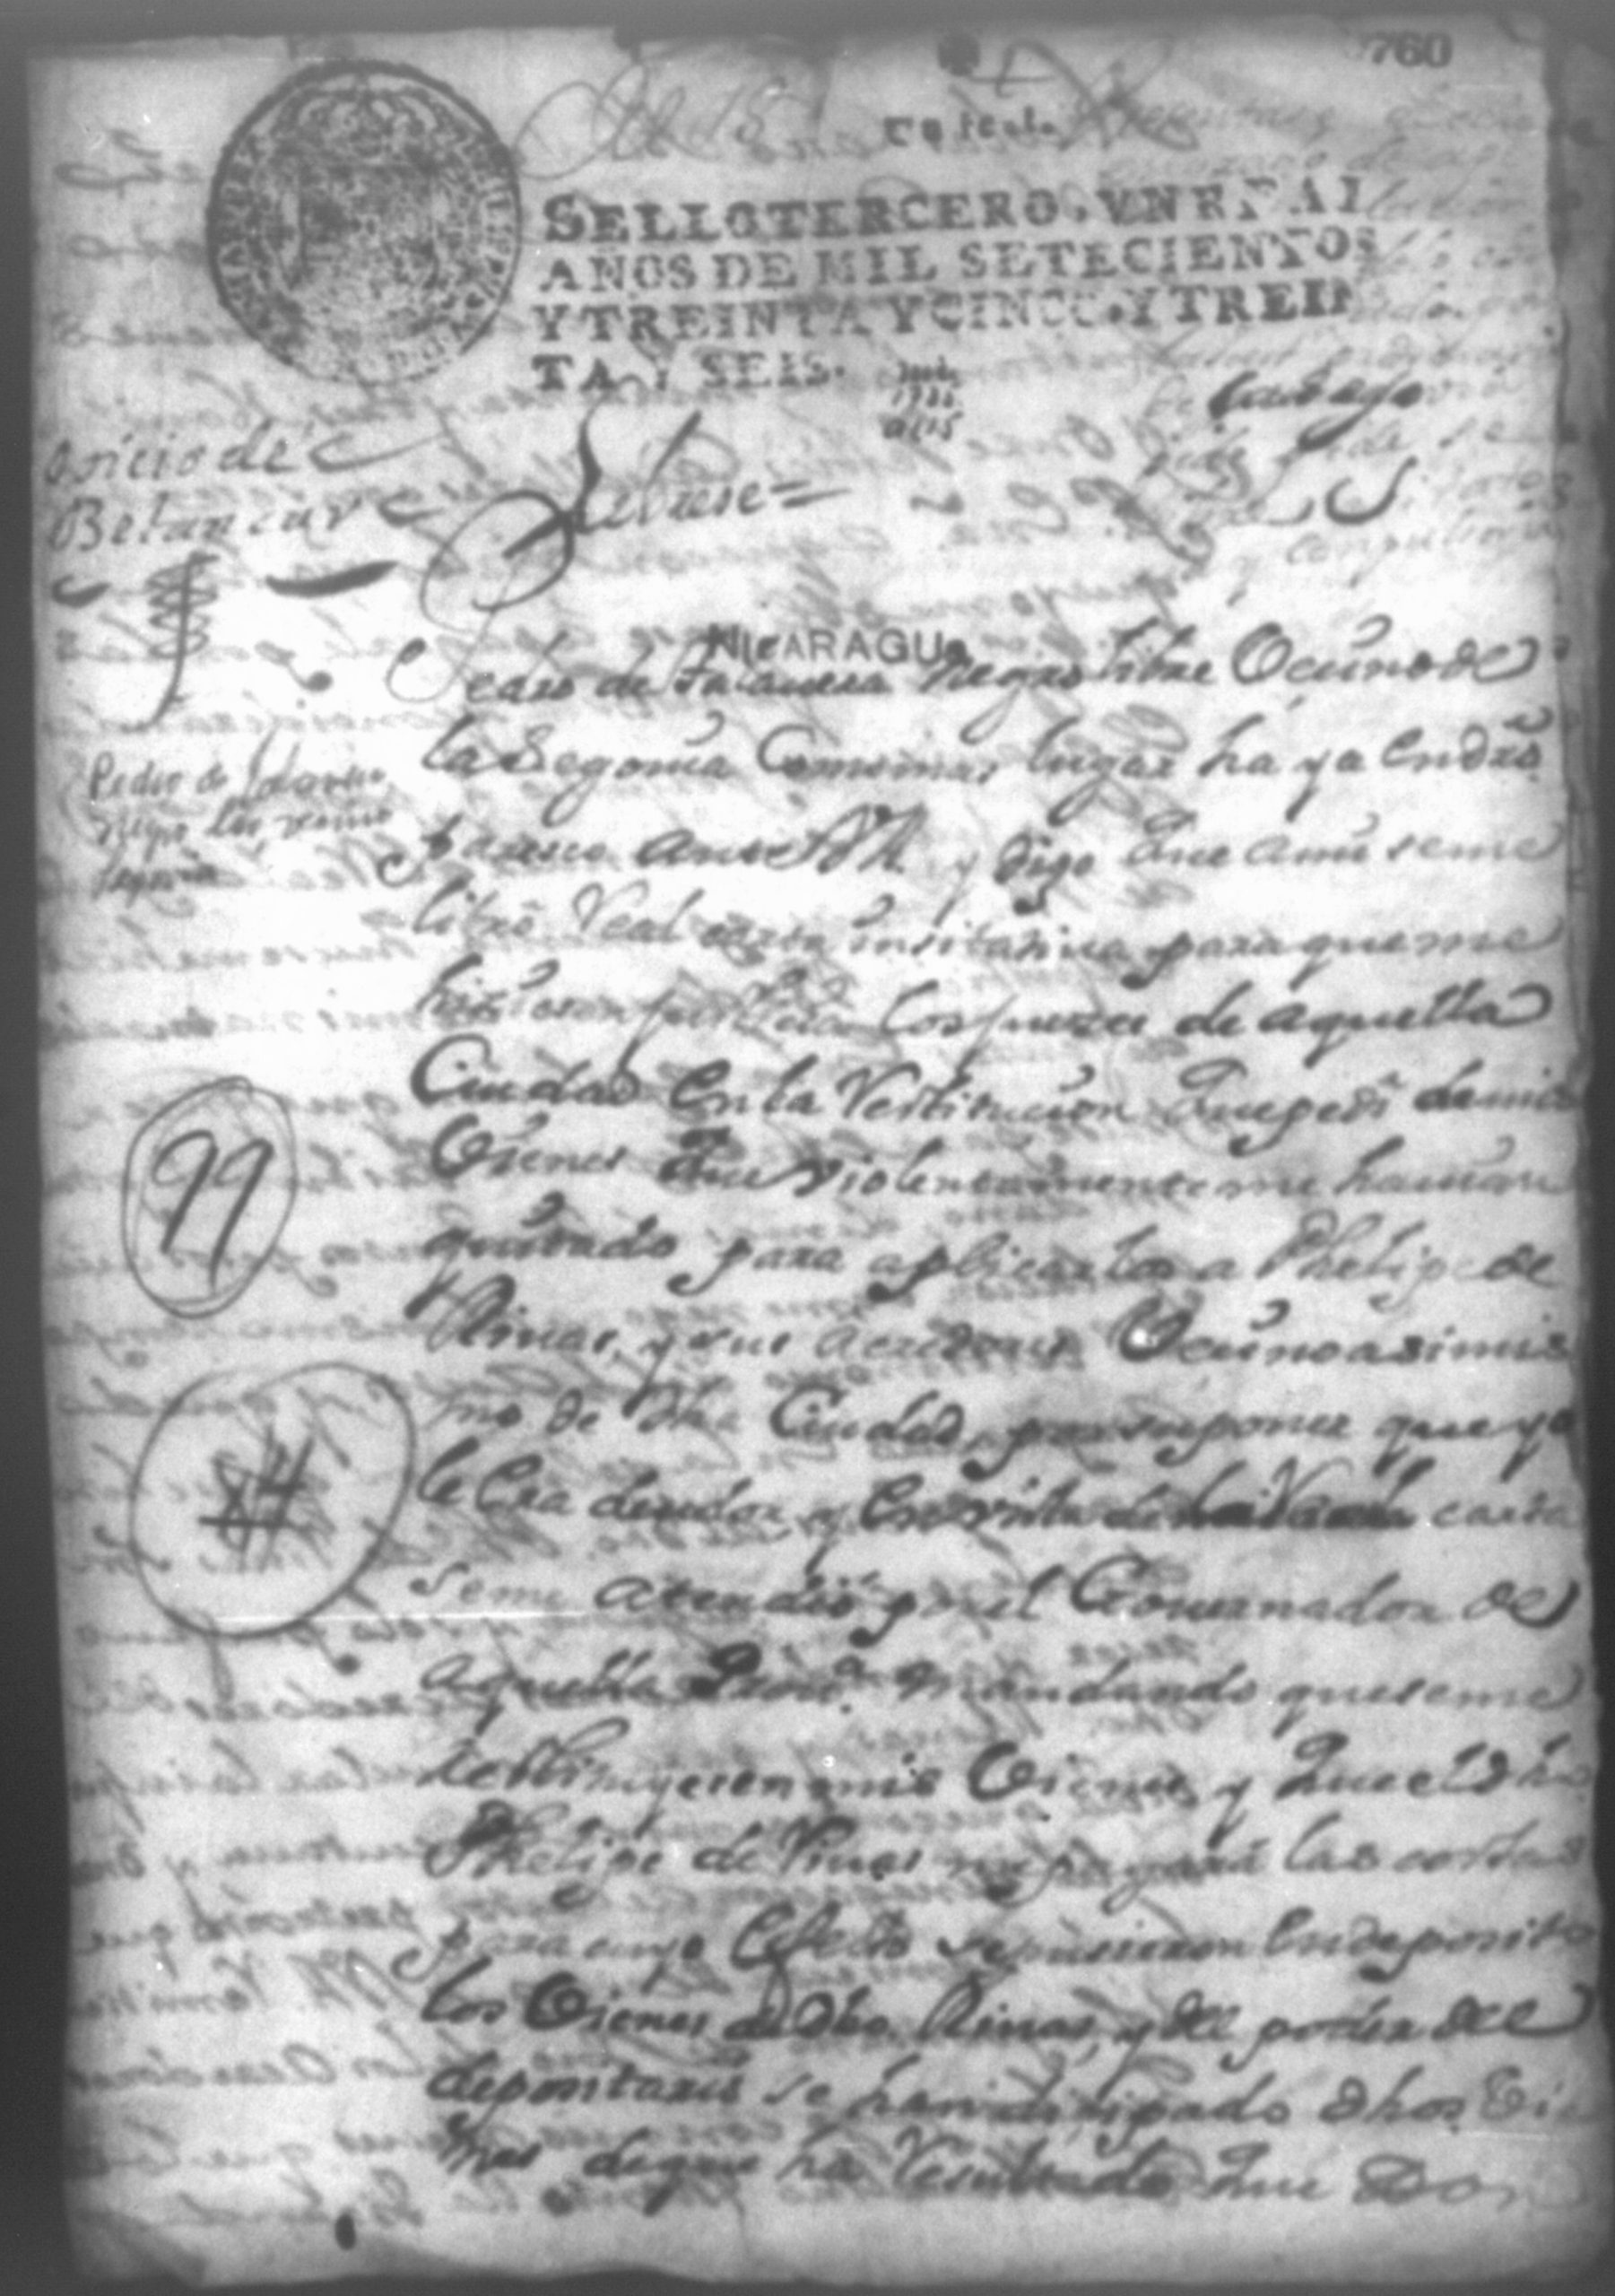 760
SELLO TERCERO, VN REAL
AÑOS DE MIL SETECIENTOS
Y TREINTA Y CINCO. Y TREIN
TA Y SEIS.
Cartago
oficio de
Betancur
Librese
NICARAGUA
Pedro de Talauera negro libre Vecino de
la Segouia Como mas lugar ha ya en dro
Paresco ante VA. y digo que a mi se me
libró Real carta insitatiua para que me
hisiesen justicia los jueces de aquella
Ciudad en la Restitucion que pedi de mis
Vienes que violentamente me hauian
quitado para aplicarlos a Phelipe de
Riuas, y sus acredores Vecino asimis
mo de dha Ciudad, por suponer que yo
le Era deudor, y En vista de la Real carta
se me atendió por el Gouernador de
aquella Prou.a mandando que se me
restituyesen mis Vienes y que el dho
Phelipe de Riuas me pagara las costas
para cuyo Efecto se pusieron en deposito
los Vienes de dho Riuas, y del poder del
depositario se han disipado dhos Vie
nes de que ha Resultado que Don
Pedro de Talauera
negro libre vecino
Segovia
99